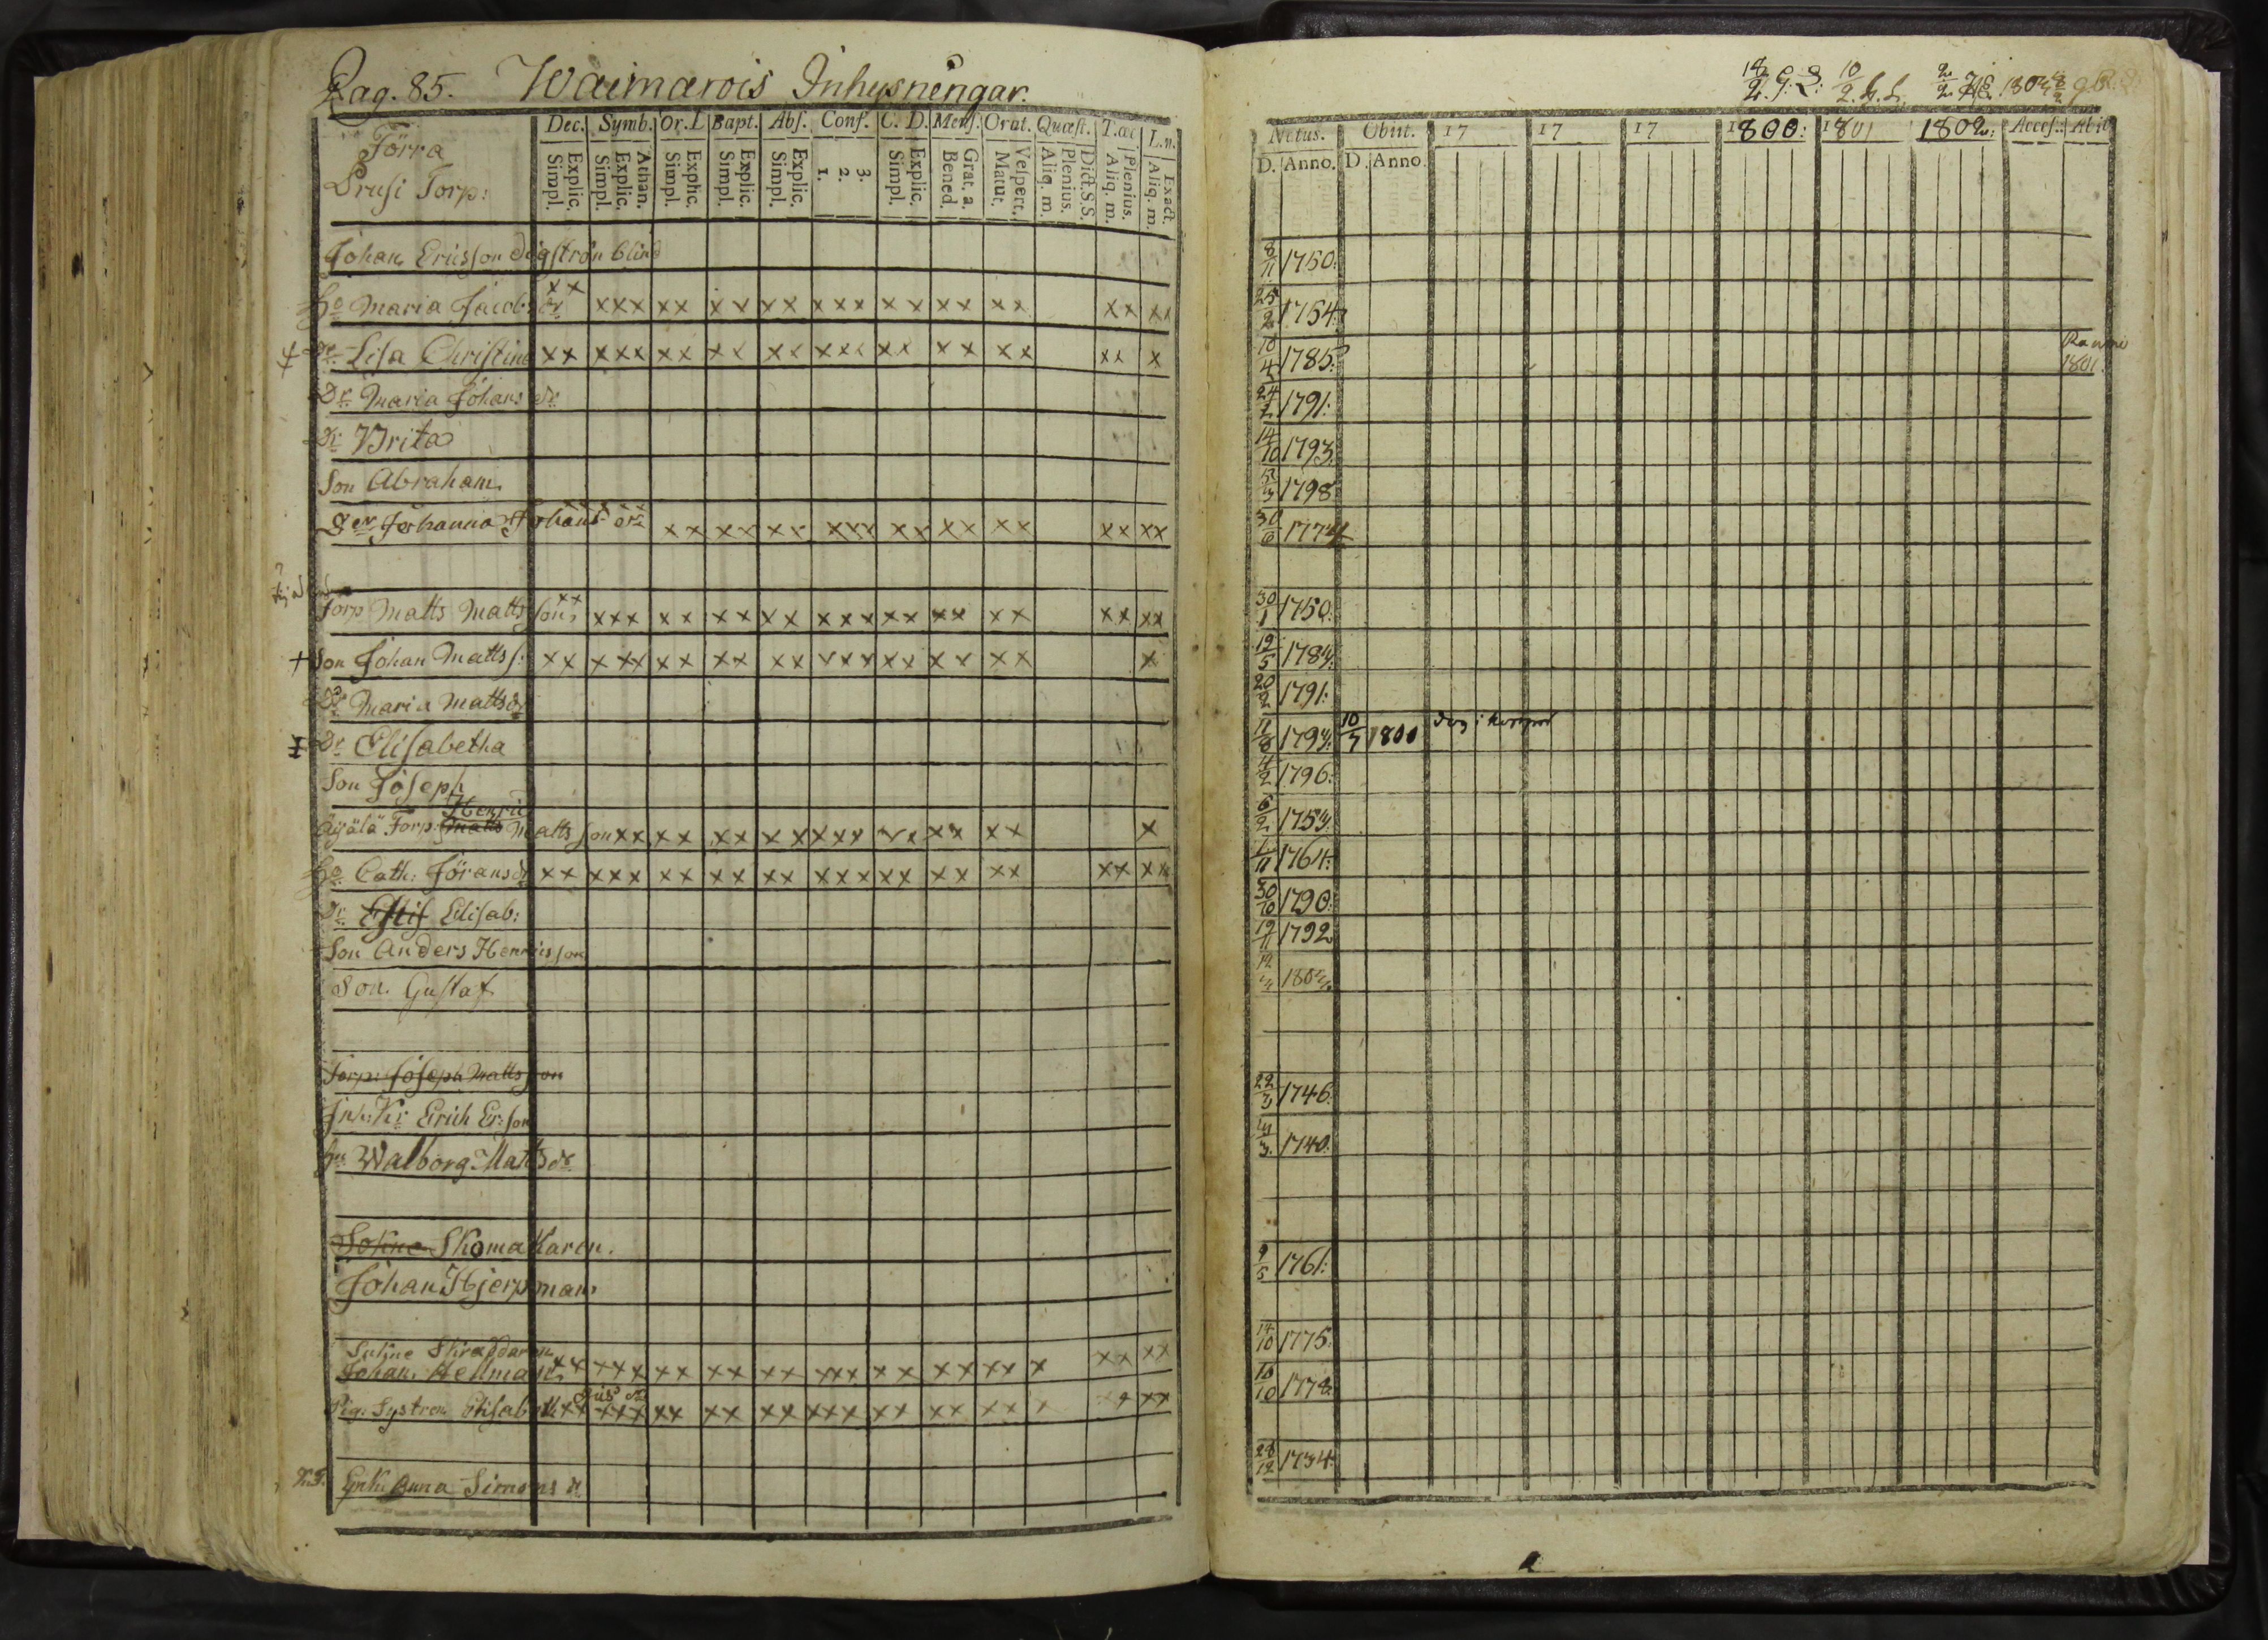 Pag. 85. Waimarois Inhysningar.
Dec. Symb. Or. L Bapt. Abs. Conf. C. D. Mens. Orat. Quæst. T. œc L.n.
Explic. Simpl. Athan. Explic. Simpl. Explic. Simpl. Explic. Simpl. Explic. Simpl. 3. 2. 1. Explic. Simpl. Grat. a. Bened. Vespert. Matut. Dict. S.S. Plenius. Aliq. m. Plenius. Aliq. m. Exact. Aliq. m.
Förra
Prusi Torp:
Johan Ericsson Sigström blind
Ho Maria Jacobs dr xx xxx xx xx xx xxx xx xx xx xx xx
Dr Lisa Christina xx xxx xx xx xx xxx xx xx xx xx x
Dr Maria Johans dr
Dr Brita
Son Abraham
Johanna Johans dr xx xx xx xxx xx xx xx xx xx
Torp Matts Mattsson xx xxx xx xx xx xxx xx xx xx xx xx
+ Son Johan Mattss. xx xxx xx xx xx xxx xx xx xx x
Dr Maria Matts dr
Dr Elisabetha
Son Joseph
Henric
Äijälä Torp: Matts Mattsson xx xx xx xx xxx xx xx xx x
Ho Cath: Jöransdr xx xxx xx xx xx xxx xx xx xx xx xx
Dr Elisab:
Son Anders Henricsson
Son Gustaf
Torp: Joseph Mattsson
Erich Er:son
Hu Walborg Mattsdr
Sokne Skomakaren
Johan Hjerpman
Sokne Skräddaren
Johan Hellman xx xxx xx xx xx xxx xx xx xx x xx xx
Pig: Systren Elisabeth xx xxx xx xx xx xxx xx xx xx x xx xx
Enk: Anna Simons dr
1802
Natus. Obiit. 17 17 17 1800: 1801 1802: Acces. Abiit
D. Anno. D. Anno.
8/11 1750.
25/2 1754.
10/4 1785. 1801.
24/2 1791.
14/10 1793.
1798
30/6 1774
30/1 1750.
19/5 1784.
20/2 1791.
11/8 1794. 10/7 1800
4/2 1796.
6/2 1754.
1764.
30/10 1790.
19/11 1792
22/3 1746.
1740.
9/5 1761.
14/10 1775.
10/10 1778.
28/12 1734.